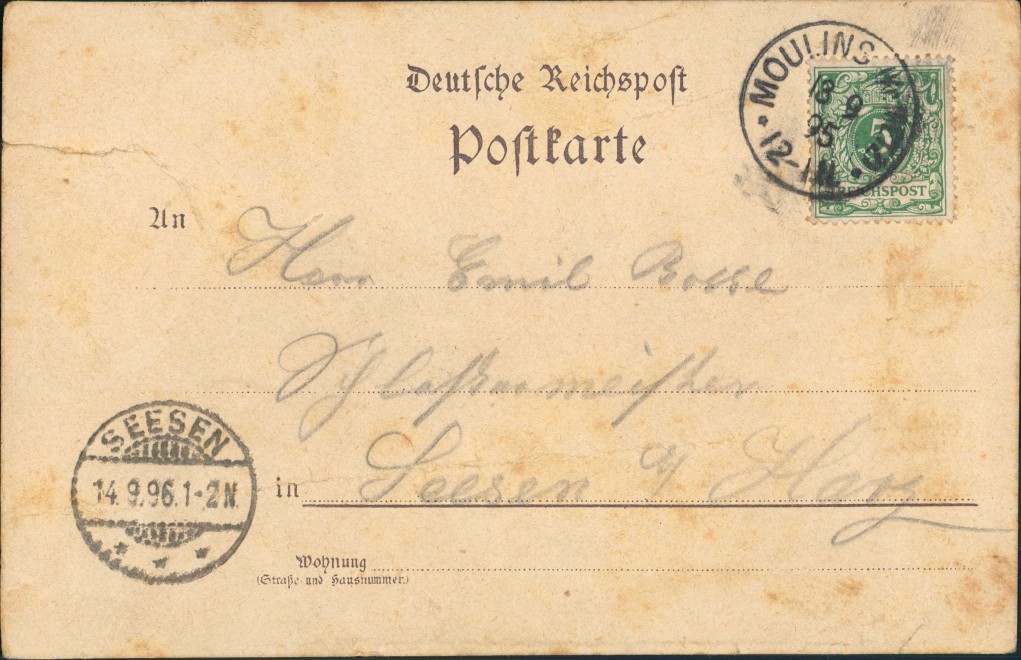 Deutsche Reichspost
Postkarte
MOULINS
13 9
95
12-1N.
5
REICHSPOST
An
Herrn Emil Bosse
Schlossermeister
in Seesen a/ Harz
SEESEN
14.9.96.1-2N
Wohnung
(Straße und Hausnummer)